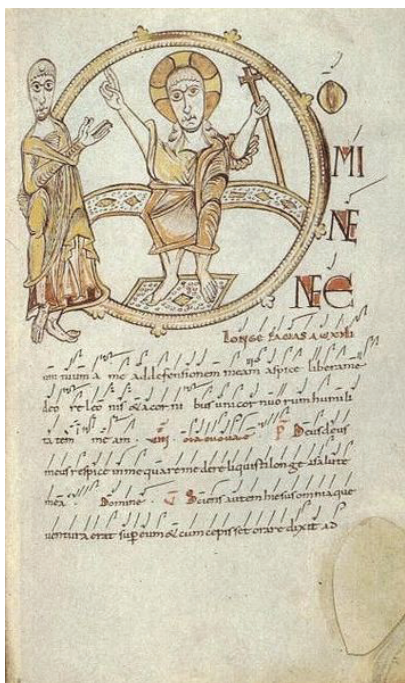 O
MI
NE
NE
LONGE FACIAS AUXILI
um tuum a me ad defensionem meam aspice libera me
de o re leo nis & a cor ni bus uni cor nuo rum humili
ta tem me am . P Deus deus
meus respice in me quare me dereliquisti longe a salute
mea . Domine . Sciens autem hiesus omnia que
uentura erat sup eum & cum cepisset orare dixit ad